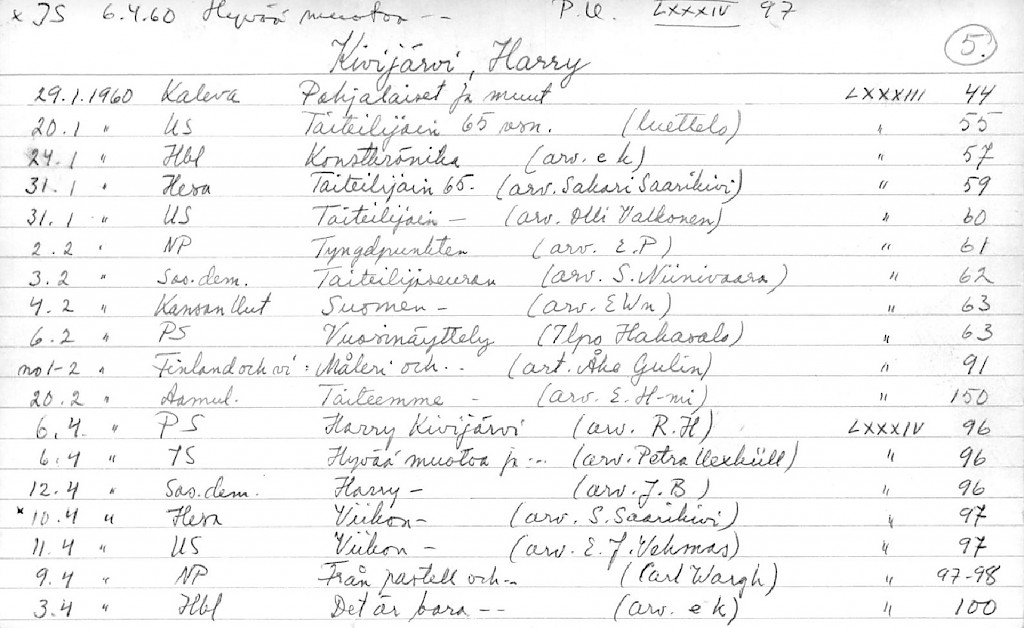 x IS 6.4.60 Hyvää muotoa -- P.U. LXXXIV 97
5.
Kivijärvi, Harry
29.1.1960 Kaleva Pohjalaiset ja muut LXXXIII 44
20.1 " US Taiteilijain 65 vsn. (luettelo) " 55
24.1 " Hbl Konstkrönika (arv. e k) " 57
31.1 " Hesa Taiteilijain 65. (arv. Sakari Saarikivi) " 59
31.1 " US Taiteilijain - (arv. Olli Valkonen) " 60
2.2 " NP Tyngdpunkten (arv. E.P) " 61
3.2 " Sos.dem. Taiteilijaseuran (arv. S. Niinivaara) " 62
4.2 " Kansan Uut Suomen - (arv. EWn) " 63
6.2 " PS Vuosinäyttely (Ilpo Hakasalo) " 63
no 1-2 " Finland och vi : Måleri och.. (art. Åke Gulin) " 91
20.2 " Aamul. Taiteemme - (arv. E. H-mi) " 150
6.4. " PS Harry Kivijärvi (arv. R.H) LXXXIV 96
6.4 " TS Hyvää muotoa ja -- (arv. Petra Uexküll) " 96
12.4 " Sos.dem. Harry - (arv. J.B) " 96
x 10.4 " Hesa Viikon - (arv. S. Saarikivi) " 97
11.4 " US Viikon - (arv. E. J. Vehmas) " 97
9.4 " NP Från pastell och -- (Carl Wargh) " 97-98
3.4 " Hbl Det är bara -- (arv. e k) " 100